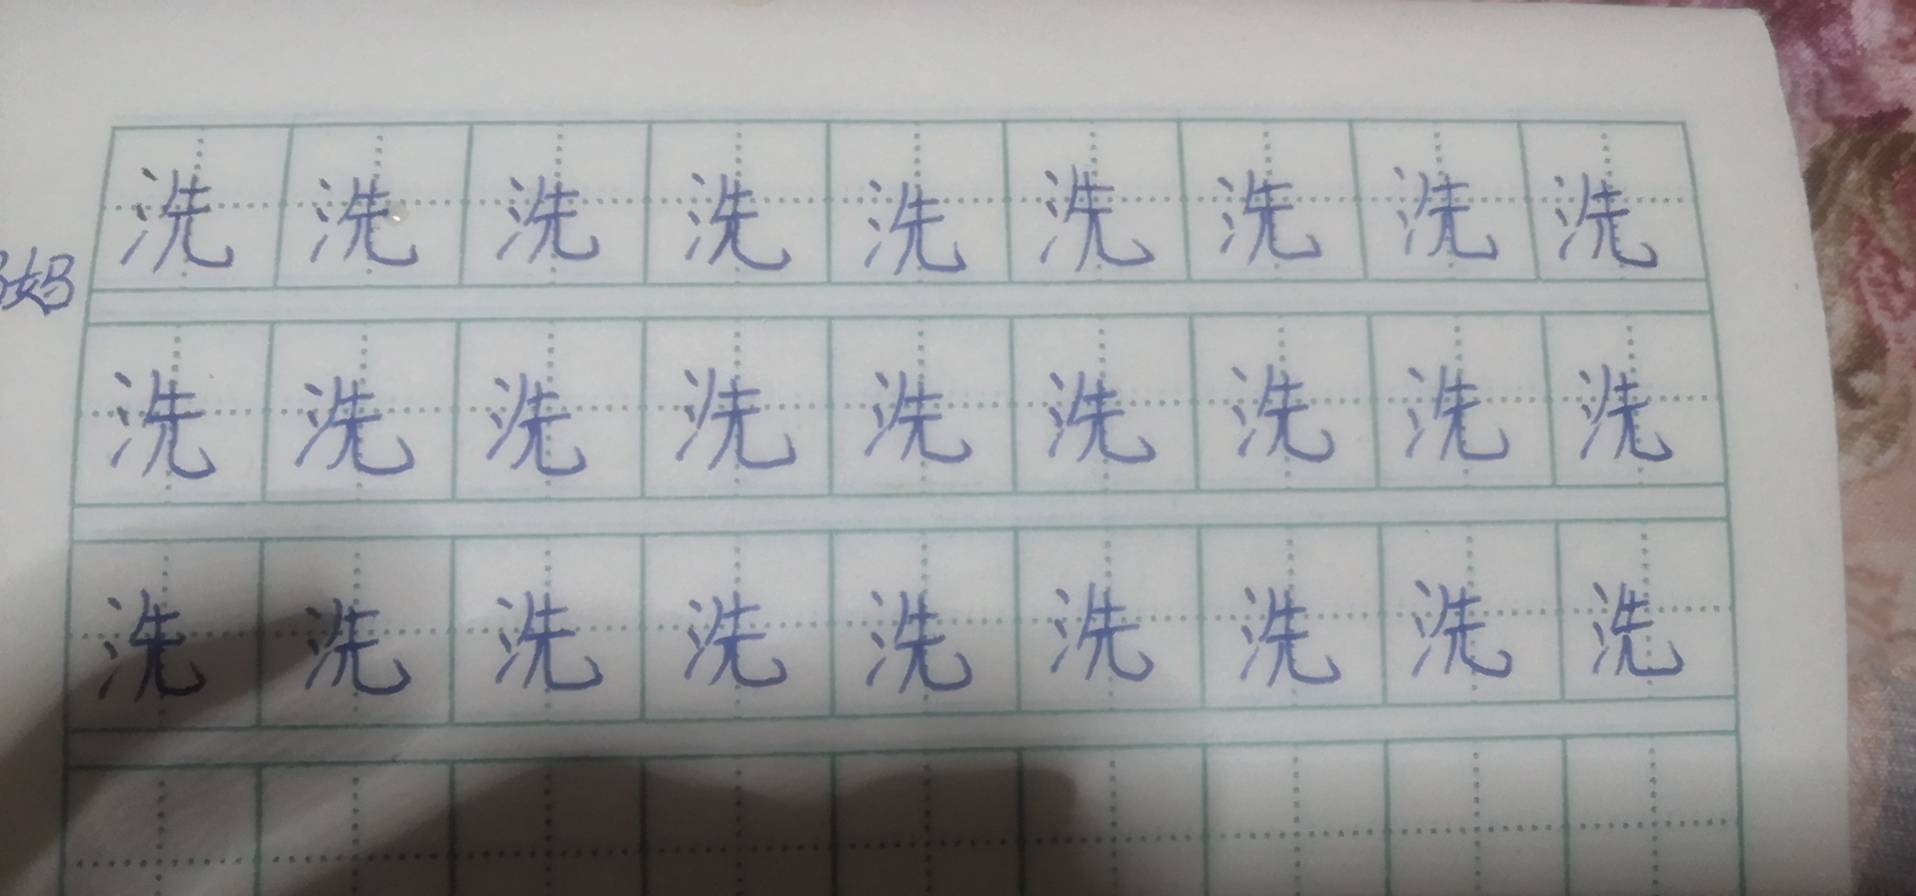 洗洗洗洗洗洗洗洗洗
妈
洗洗洗洗洗洗洗洗洗
洗洗洗洗洗洗洗洗洗